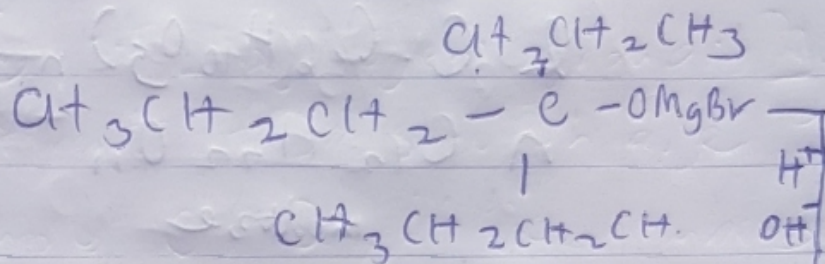 CH₂CH₂CH₃
CH₃CH₂CH₂ - C - OMgBr
H⁺
CH₃CH₂CH₂CH. OH⁻